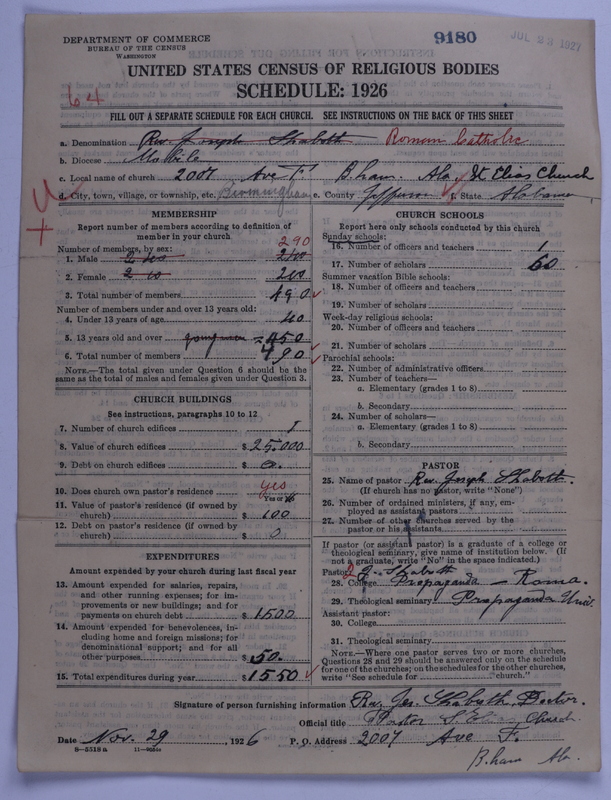 DEPARTMENT OF COMMERCE
BUREAU OF THE CENSUS
WASHINGTON
9180
JUL 23 1927
UNITED STATES CENSUS OF RELIGIOUS BODIES
SCHEDULE: 1926
64
FILL OUT A SEPARATE SCHEDULE FOR EACH CHURCH. SEE INSTRUCTIONS ON THE BACK OF THIS SHEET
a. Denomination Rev. Joseph Shabott Roman Catholic
b. Diocese Mobile
c. Local name of church 2007 Ave F. B.ham. Ala. St Elias Church
d. City, town, village, or township, etc. Birmingham e. County Jefferson f. State Alabama
MEMBERSHIP
Report number of members according to definition of
member in your church
Number of members, by sex: 290
1. Male
2. Female 200
3. Total number of members 490
Number of members under and over 13 years old:
4. Under 13 years of age 40
5. 13 years old and over 450
6. Total number of members 490
NOTE.—The total given under Question 6 should be the
same as the total of males and females given under Question 3.
CHURCH BUILDINGS
See instructions, paragraphs 10 to 12
7. Number of church edifices 1
8. Value of church edifices $ 25.000
9. Debt on church edifices $ 0.
10. Does church own pastor's residence yes
Yes or No
11. Value of pastor's residence (if owned by
church) $ 100
12. Debt on pastor's residence (if owned by
church) $ 0
EXPENDITURES
Amount expended by your church during last fiscal year
13. Amount expended for salaries, repairs,
and other running expenses; for im-
provements or new buildings; and for
payments on church debt $ 1500
14. Amount expended for benevolences, in-
cluding home and foreign missions; for
denominational support; and for all
other purposes $ 50.
15. Total expenditures during year $ 1550
CHURCH SCHOOLS
Report here only schools conducted by this church
Sunday schools:
16. Number of officers and teachers 1
17. Number of scholars 60
Summer vacation Bible schools:
18. Number of officers and teachers
19. Number of scholars
Week-day religious schools:
20. Number of officers and teachers
21. Number of scholars
Parochial schools:
22. Number of administrative officers
23. Number of teachers—
a. Elementary (grades 1 to 8)
b. Secondary
24. Number of scholars—
a. Elementary (grades 1 to 8)
b. Secondary
PASTOR
25. Name of pastor Rev. Joseph Shabott.
(If church has no pastor, write "None")
26. Number of ordained ministers, if any, em-
ployed as assistant pastors
27. Number of other churches served by the
pastor or his assistants
If pastor (or assistant pastor) is a graduate of a college or
theological seminary, give name of institution below. (If
not a graduate, write "No" in the space indicated.)
Pastor: J. Shabott
28. College Propaganda — Roma.
29. Theological seminary Propaganda Univ.
Assistant pastor:
30. College
31. Theological seminary
NOTE.—Where one pastor serves two or more churches,
Questions 28 and 29 should be answered only on the schedule
for one of the churches; on the schedules for the other churches,
write "See schedule for church."
Signature of person furnishing information Rev. Jos. Shabott, Pastor.
Official title Pastor St. Elias Church
Date Nov. 29, 1926 P. O. Address 2007 Ave F.
8—5518 a
B.ham Ala.